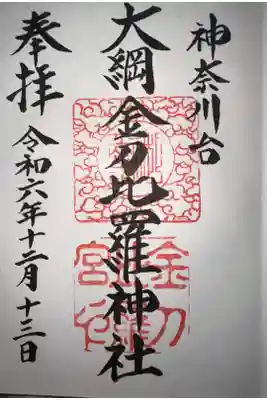 神奈川台
大綱金刀比羅神社
奉拝
令和六年十二月十三日